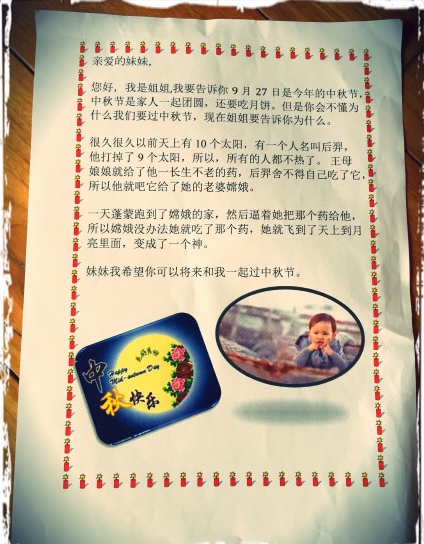 亲爱的妹妹,
您好, 我是姐姐,我要告诉你 9 月 27 日是今年的中秋节,
中秋节是家人一起团圆，还要吃月饼。但是你会不懂为
什么我们要过中秋节，现在姐姐要告诉你为什么。
很久很久以前天上有 10 个太阳，有一个人名叫后羿，
他打掉了 9 个太阳，所以，所有的人都不热了。 王母
娘娘就给了他一长生不老的药，后羿舍不得自己吃了它，
所以他就吧它给了她的老婆嫦娥。
一天蓬蒙跑到了嫦娥的家，然后逼着她把那个药给他，
所以嫦娥没办法她就吃了那个药，她就飞到了天上到月
亮里面，变成了一个神。
妹妹我希望你可以将来和我一起过中秋节。
Happy
Mid-autumn Day
中
秋快乐